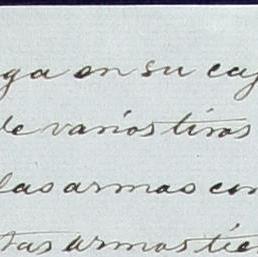 ga en su caj
de varios tiros
las armas con
tas armas tie